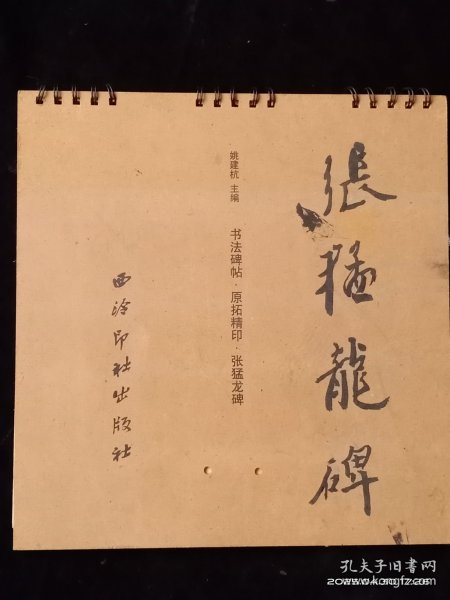 張猛龍碑
姚建杭 主编
书法碑帖·原拓精印·张猛龙碑
西泠印社出版社
孔夫子旧书网